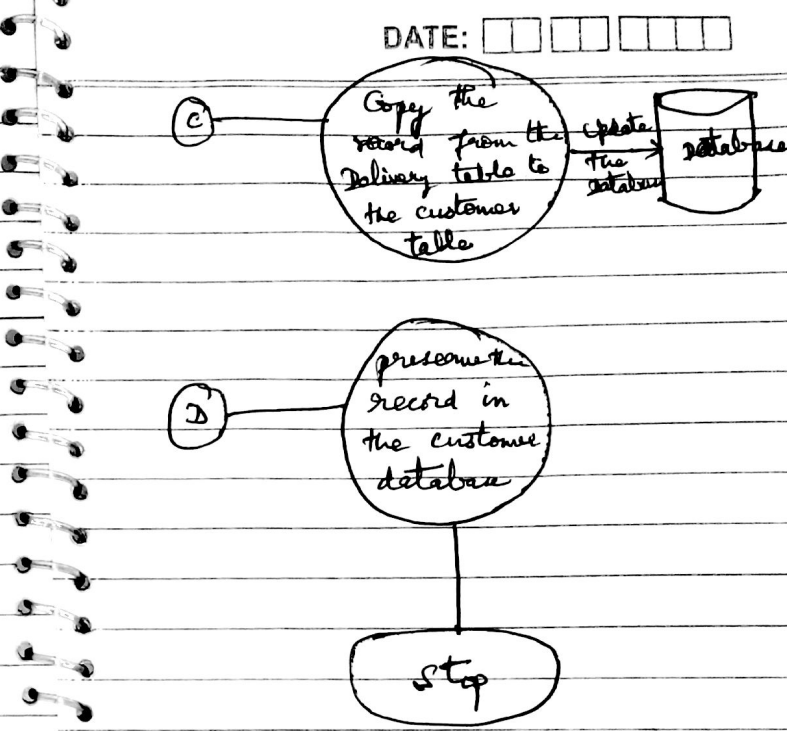 DATE:
C
Copy the
record from the
Delivery table to
the customer
table
Update
the
database
Database
D
preserve the
record in
the customer
database
Stop